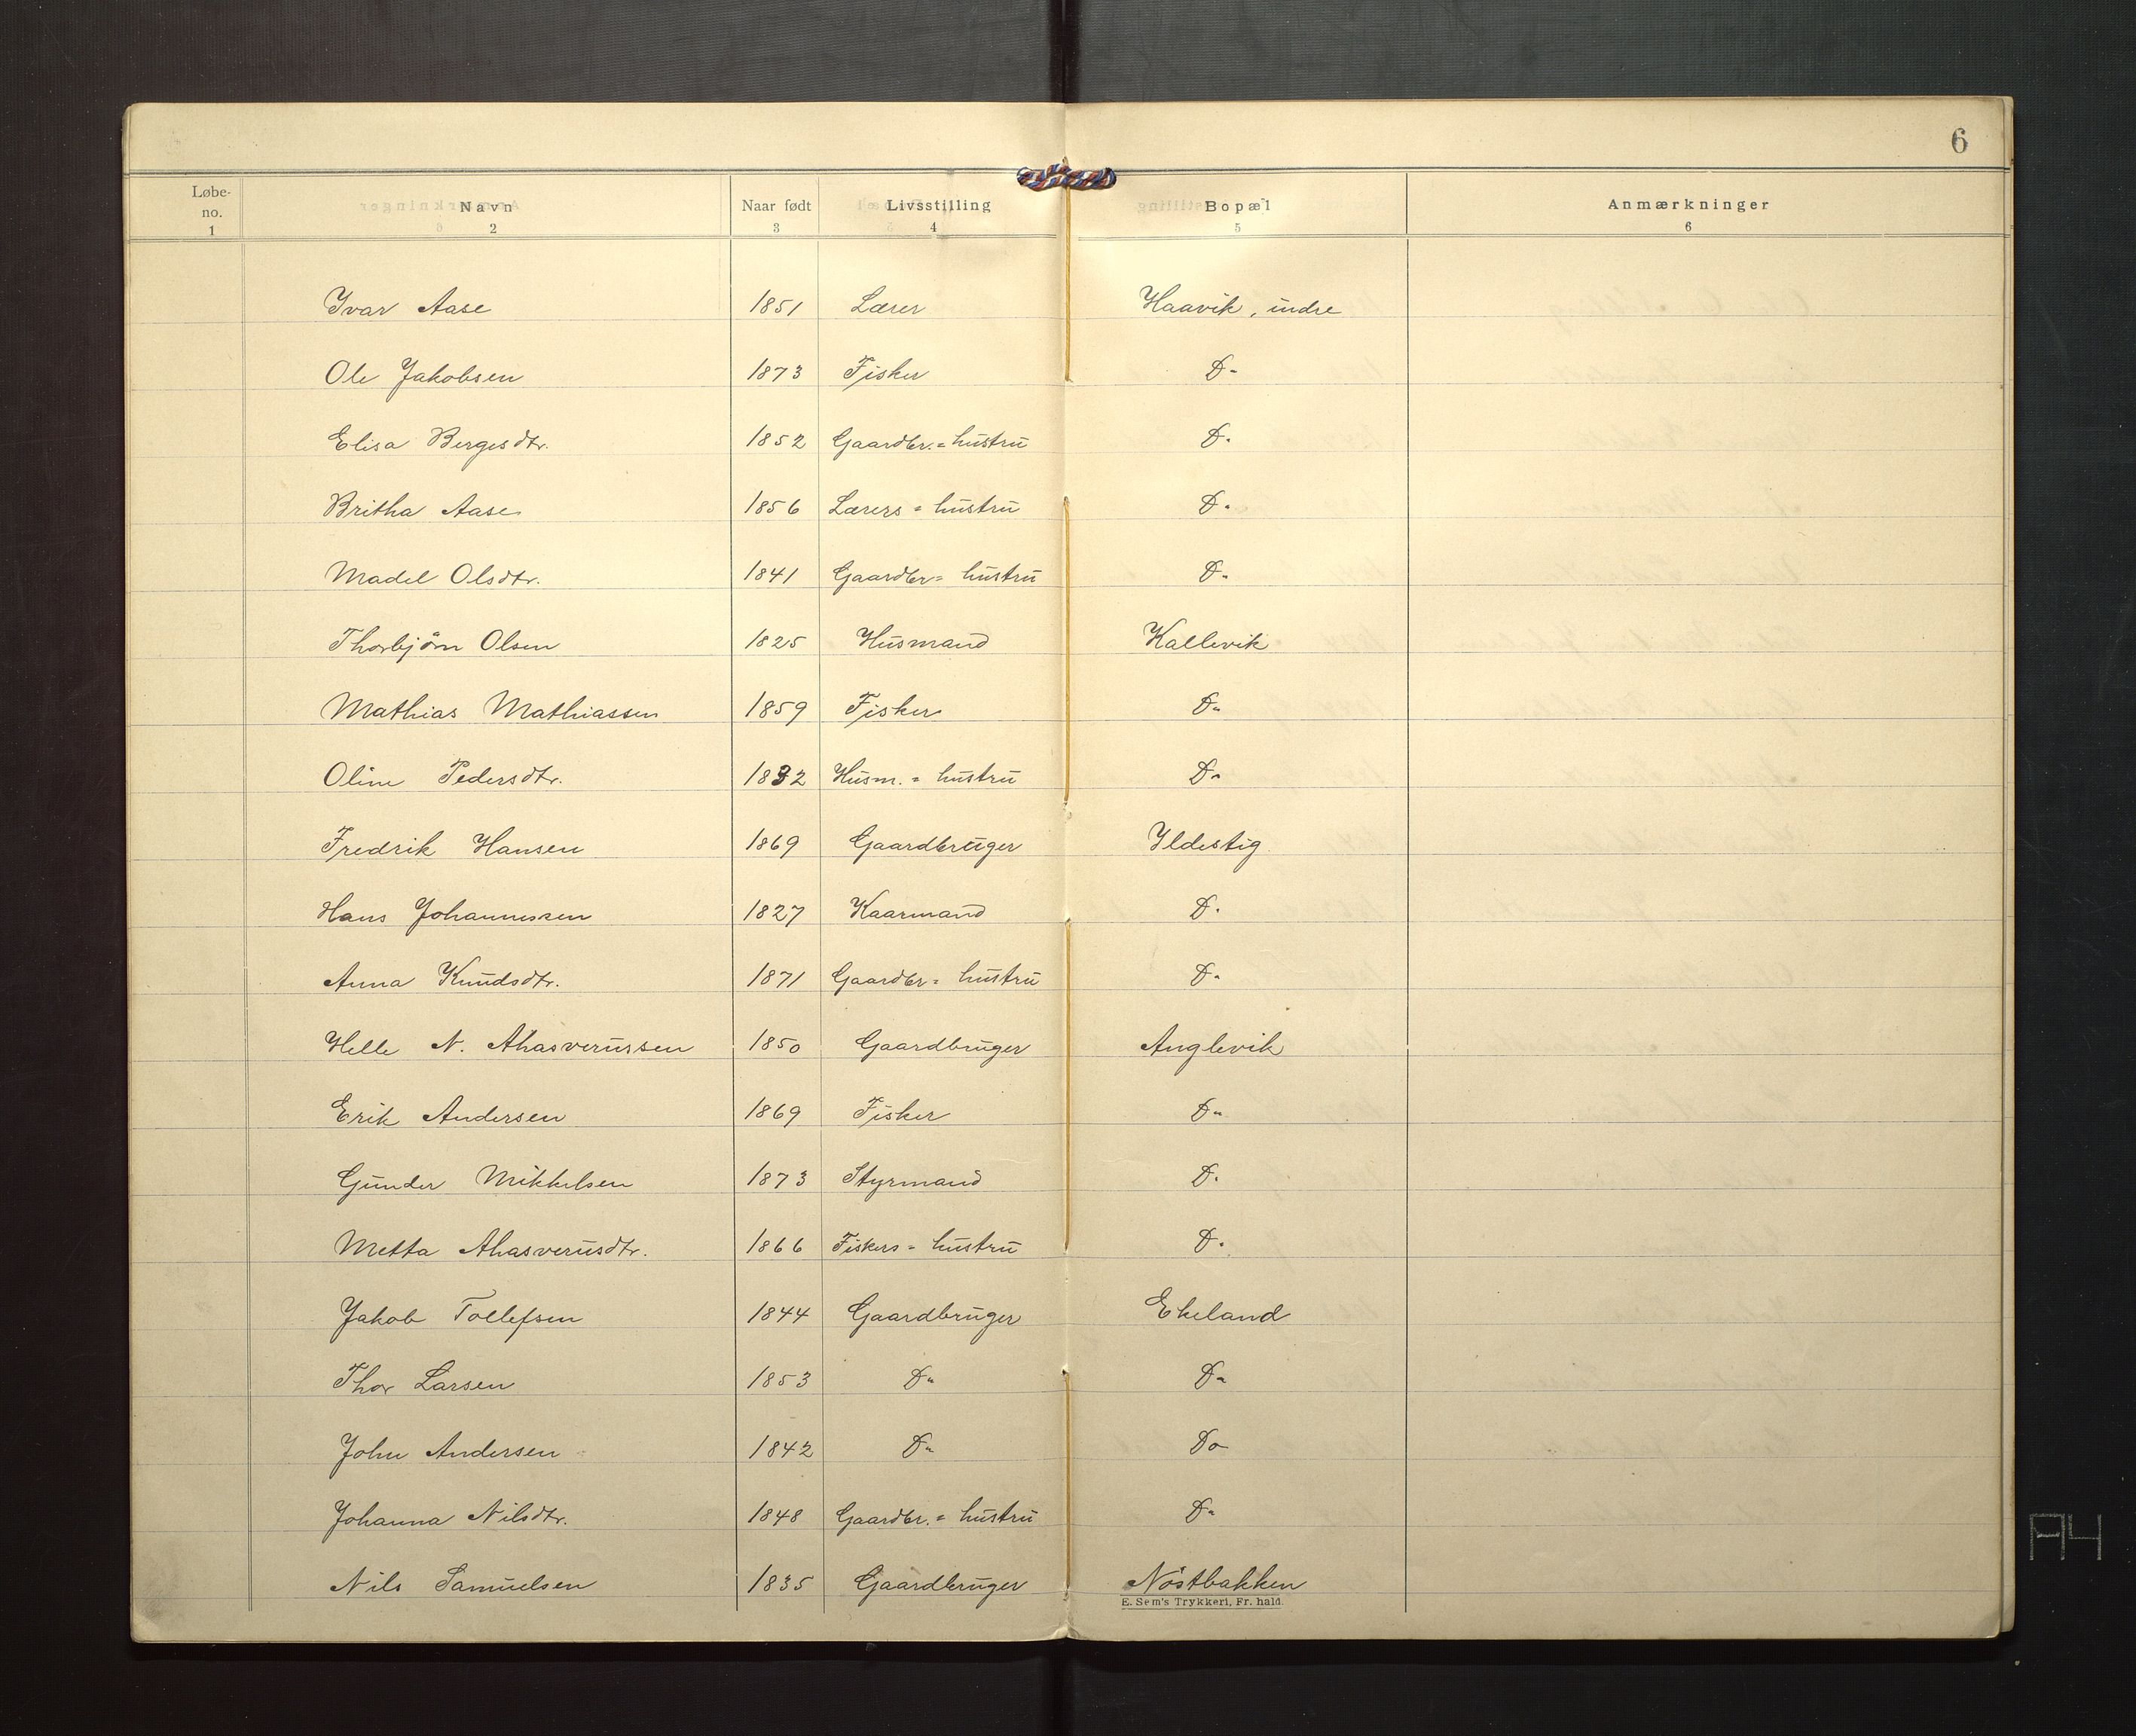 6
Løbe-no. Navn Naar født Livsstilling Bopæl Anmærkninger
1 2 3 4 5 6
Ivar Aase 1851 Lærer Haavik, indre
Ole Jakobsen 1873 Fisker Do
Elisa Bergesdtr. 1852 Gaardbr.= hustru Do
Britha Aase 1856 Lærers= hustru Do
Madel Olsdtr. 1841 Gaardbr= hustru Do
Thorbjørn Olsen 1825 Husmand Kallevik
Mathias Mathiassen 1859 Fisker Do
Oline Pedersdtr. 1832 Husm.= hustru Do
Fredrik Hansen 1869 Gaardbruger Ildestig
Hans Johannessen 1827 Kaarmand Do
Anna Knudsdtr. 1871 Gaardbr= hustru Do
Helle N. Ahasverussen 1850 Gaardbruger Anglevik
Erik Andersen 1869 Fisker Do
Gunder Mikkelsen 1873 Styrmand Do
Metta Ahasverusdtr. 1866 Fiskers= hustru Do
Jakob Tollefsen 1844 Gaardbruger Ekeland
Thor Larsen 1853 Do Do
John Andersen 1842 Do Do
Johanna Nilsdtr. 1848 Gaardbr.= hustru Do
Nils Samuelsen 1835 Gaardbruger Nøstbakken
E. Sem's Trykkeri, Fr. hald
A4